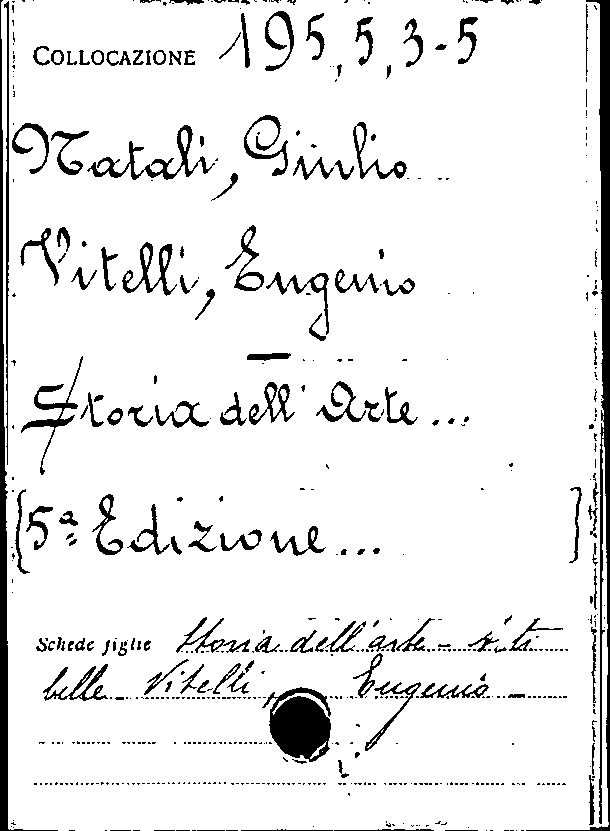 COLLOCAZIONE 195, 5, 3-5
Natali, Giulio
Vitelli, Eugenio
Storia dell' Arte ...
[5ª Edizione ... ]
Schede figlie Storia dell'arte -
belle - Vitelli, Eugenio -